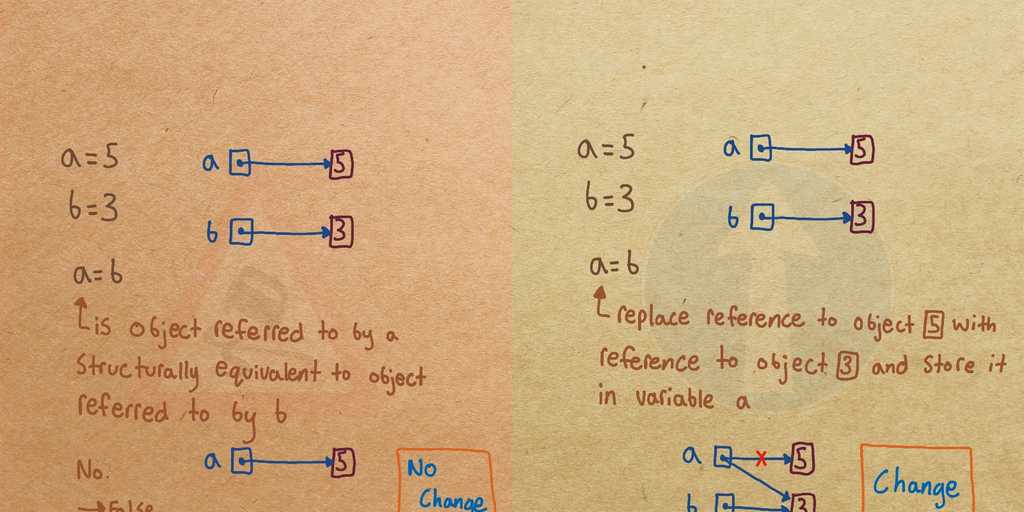 a=5
a 5
b=3
b 3
a=b
is object referred to by a
structurally equivalent to object
referred to by b
a 5
No.
→False
No
Change
a=5
a 5
b=3
b 3
a=b
replace reference to object 5 with
reference to object 3 and store it
in variable a
a x 5
b 3
Change